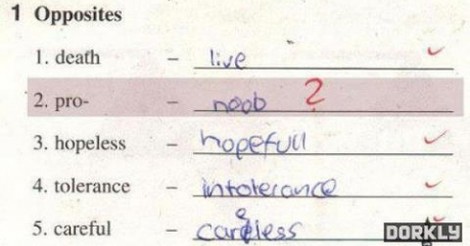 1 Opposites
1. death - live
2. pro- - noob ?
3. hopeless - hopefull
4. tolerance - intolerance
5. careful - careless
DORKLY